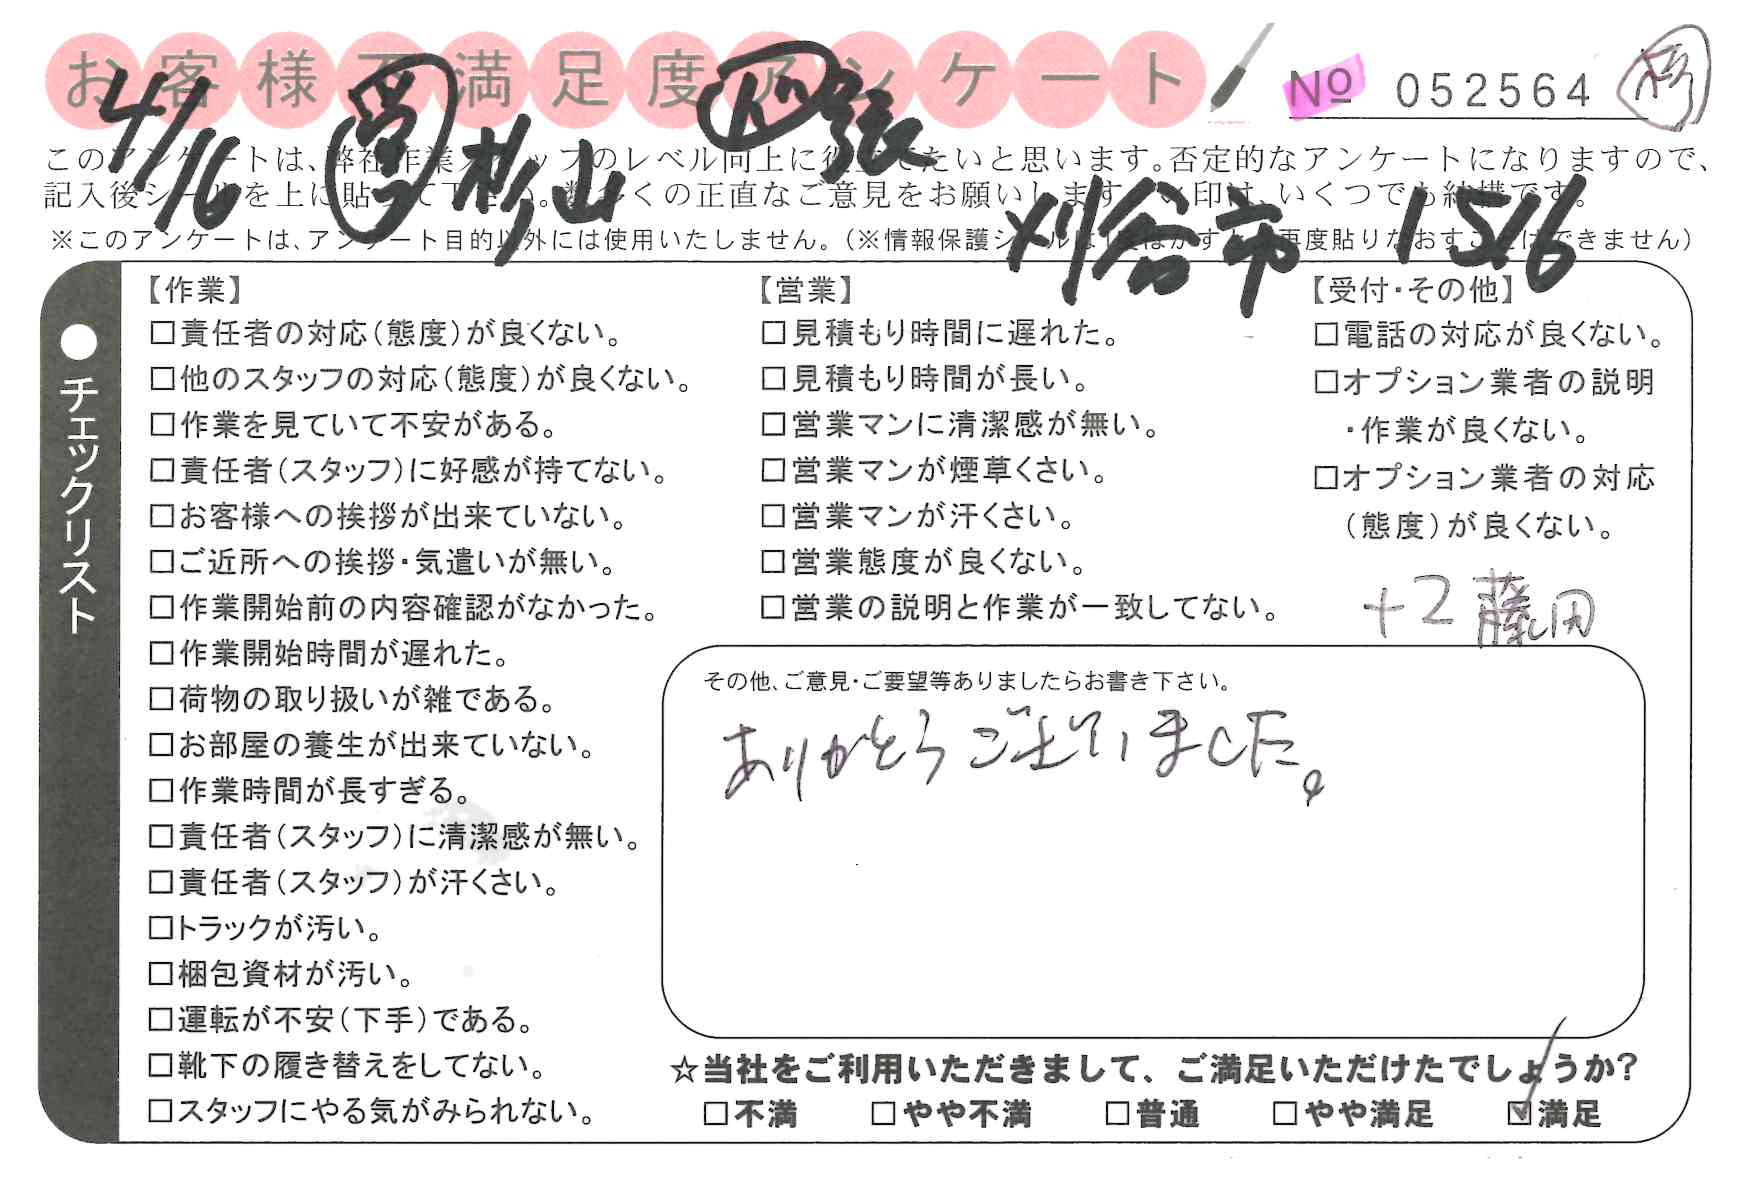 お客様不満足度アンケート
№ 052564 杉
4/16 営 杉山 見張
このアンケートは、弊社作業スタッフのレベル向上に役立てたいと思います。否定的なアンケートになりますので、
記入後シールを上に貼って下さい。数多くの正直なご意見をお願いします。レ印は、いくつでも結構です。
刈谷市 1516
※このアンケートは、アンケート目的以外には使用いたしません。（※情報保護シールは1度はがすと、再度貼りなおすことはできません）
●チェックリスト
【作業】
□責任者の対応（態度）が良くない。
□他のスタッフの対応（態度）が良くない。
□作業を見ていて不安がある。
□責任者（スタッフ）に好感が持てない。
□お客様への挨拶が出来ていない。
□ご近所への挨拶・気遣いが無い。
□作業開始前の内容確認がなかった。
□作業開始時間が遅れた。
□荷物の取り扱いが雑である。
□お部屋の養生が出来ていない。
□作業時間が長すぎる。
□責任者（スタッフ）に清潔感が無い。
□責任者（スタッフ）が汗くさい。
□トラックが汚い。
□梱包資材が汚い。
□運転が不安（下手）である。
□靴下の履き替えをしてない。
□スタッフにやる気がみられない。
【営業】
□見積もり時間に遅れた。
□見積もり時間が長い。
□営業マンに清潔感が無い。
□営業マンが煙草くさい。
□営業マンが汗くさい。
□営業態度が良くない。
□営業の説明と作業が一致してない。
【受付・その他】
□電話の対応が良くない。
□オプション業者の説明
・作業が良くない。
□オプション業者の対応
（態度）が良くない。
+2 藤田
その他、ご意見・ご要望等ありましたらお書き下さい。
ありがとうございました。
☆当社をご利用いただきまして、ご満足いただけたでしょうか？
□不満 □やや不満 □普通 □やや満足 ☑満足